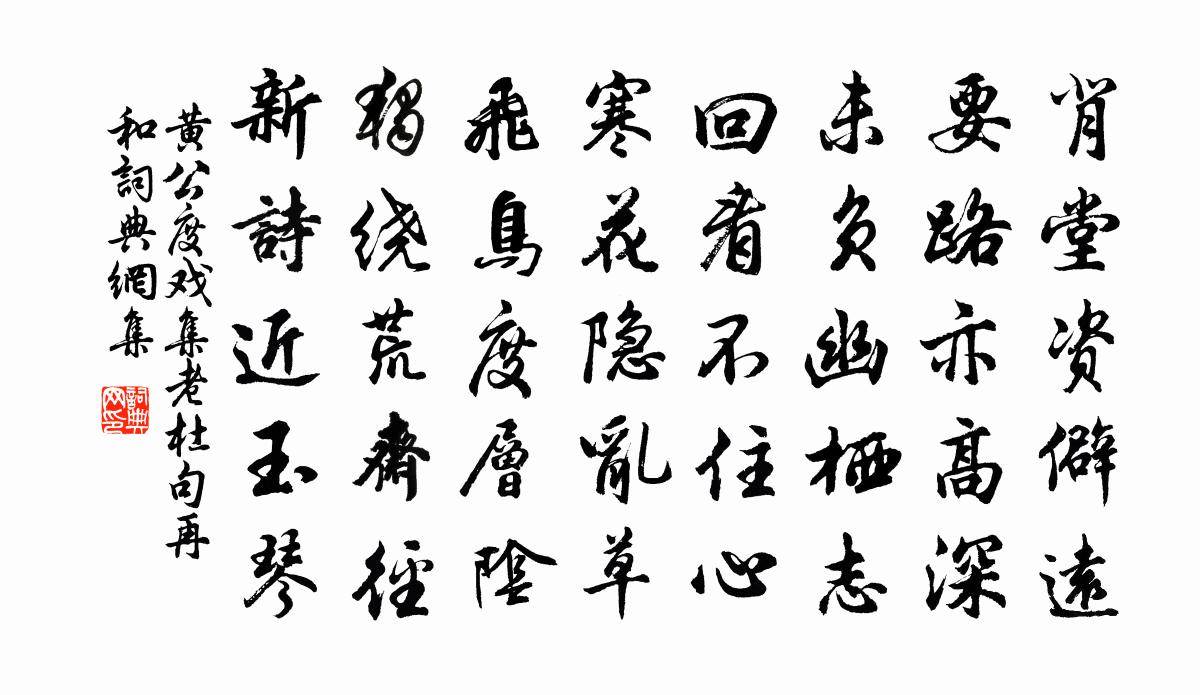 肖堂资僻遠
要路亦高深
未负幽栖志
回看不住心
寒花隐亂草
飛鳥度層陰
獨绕荒齋徑
新詩近玉琴
黄公度戏集老杜句再
和詞典網集
詞典
网印